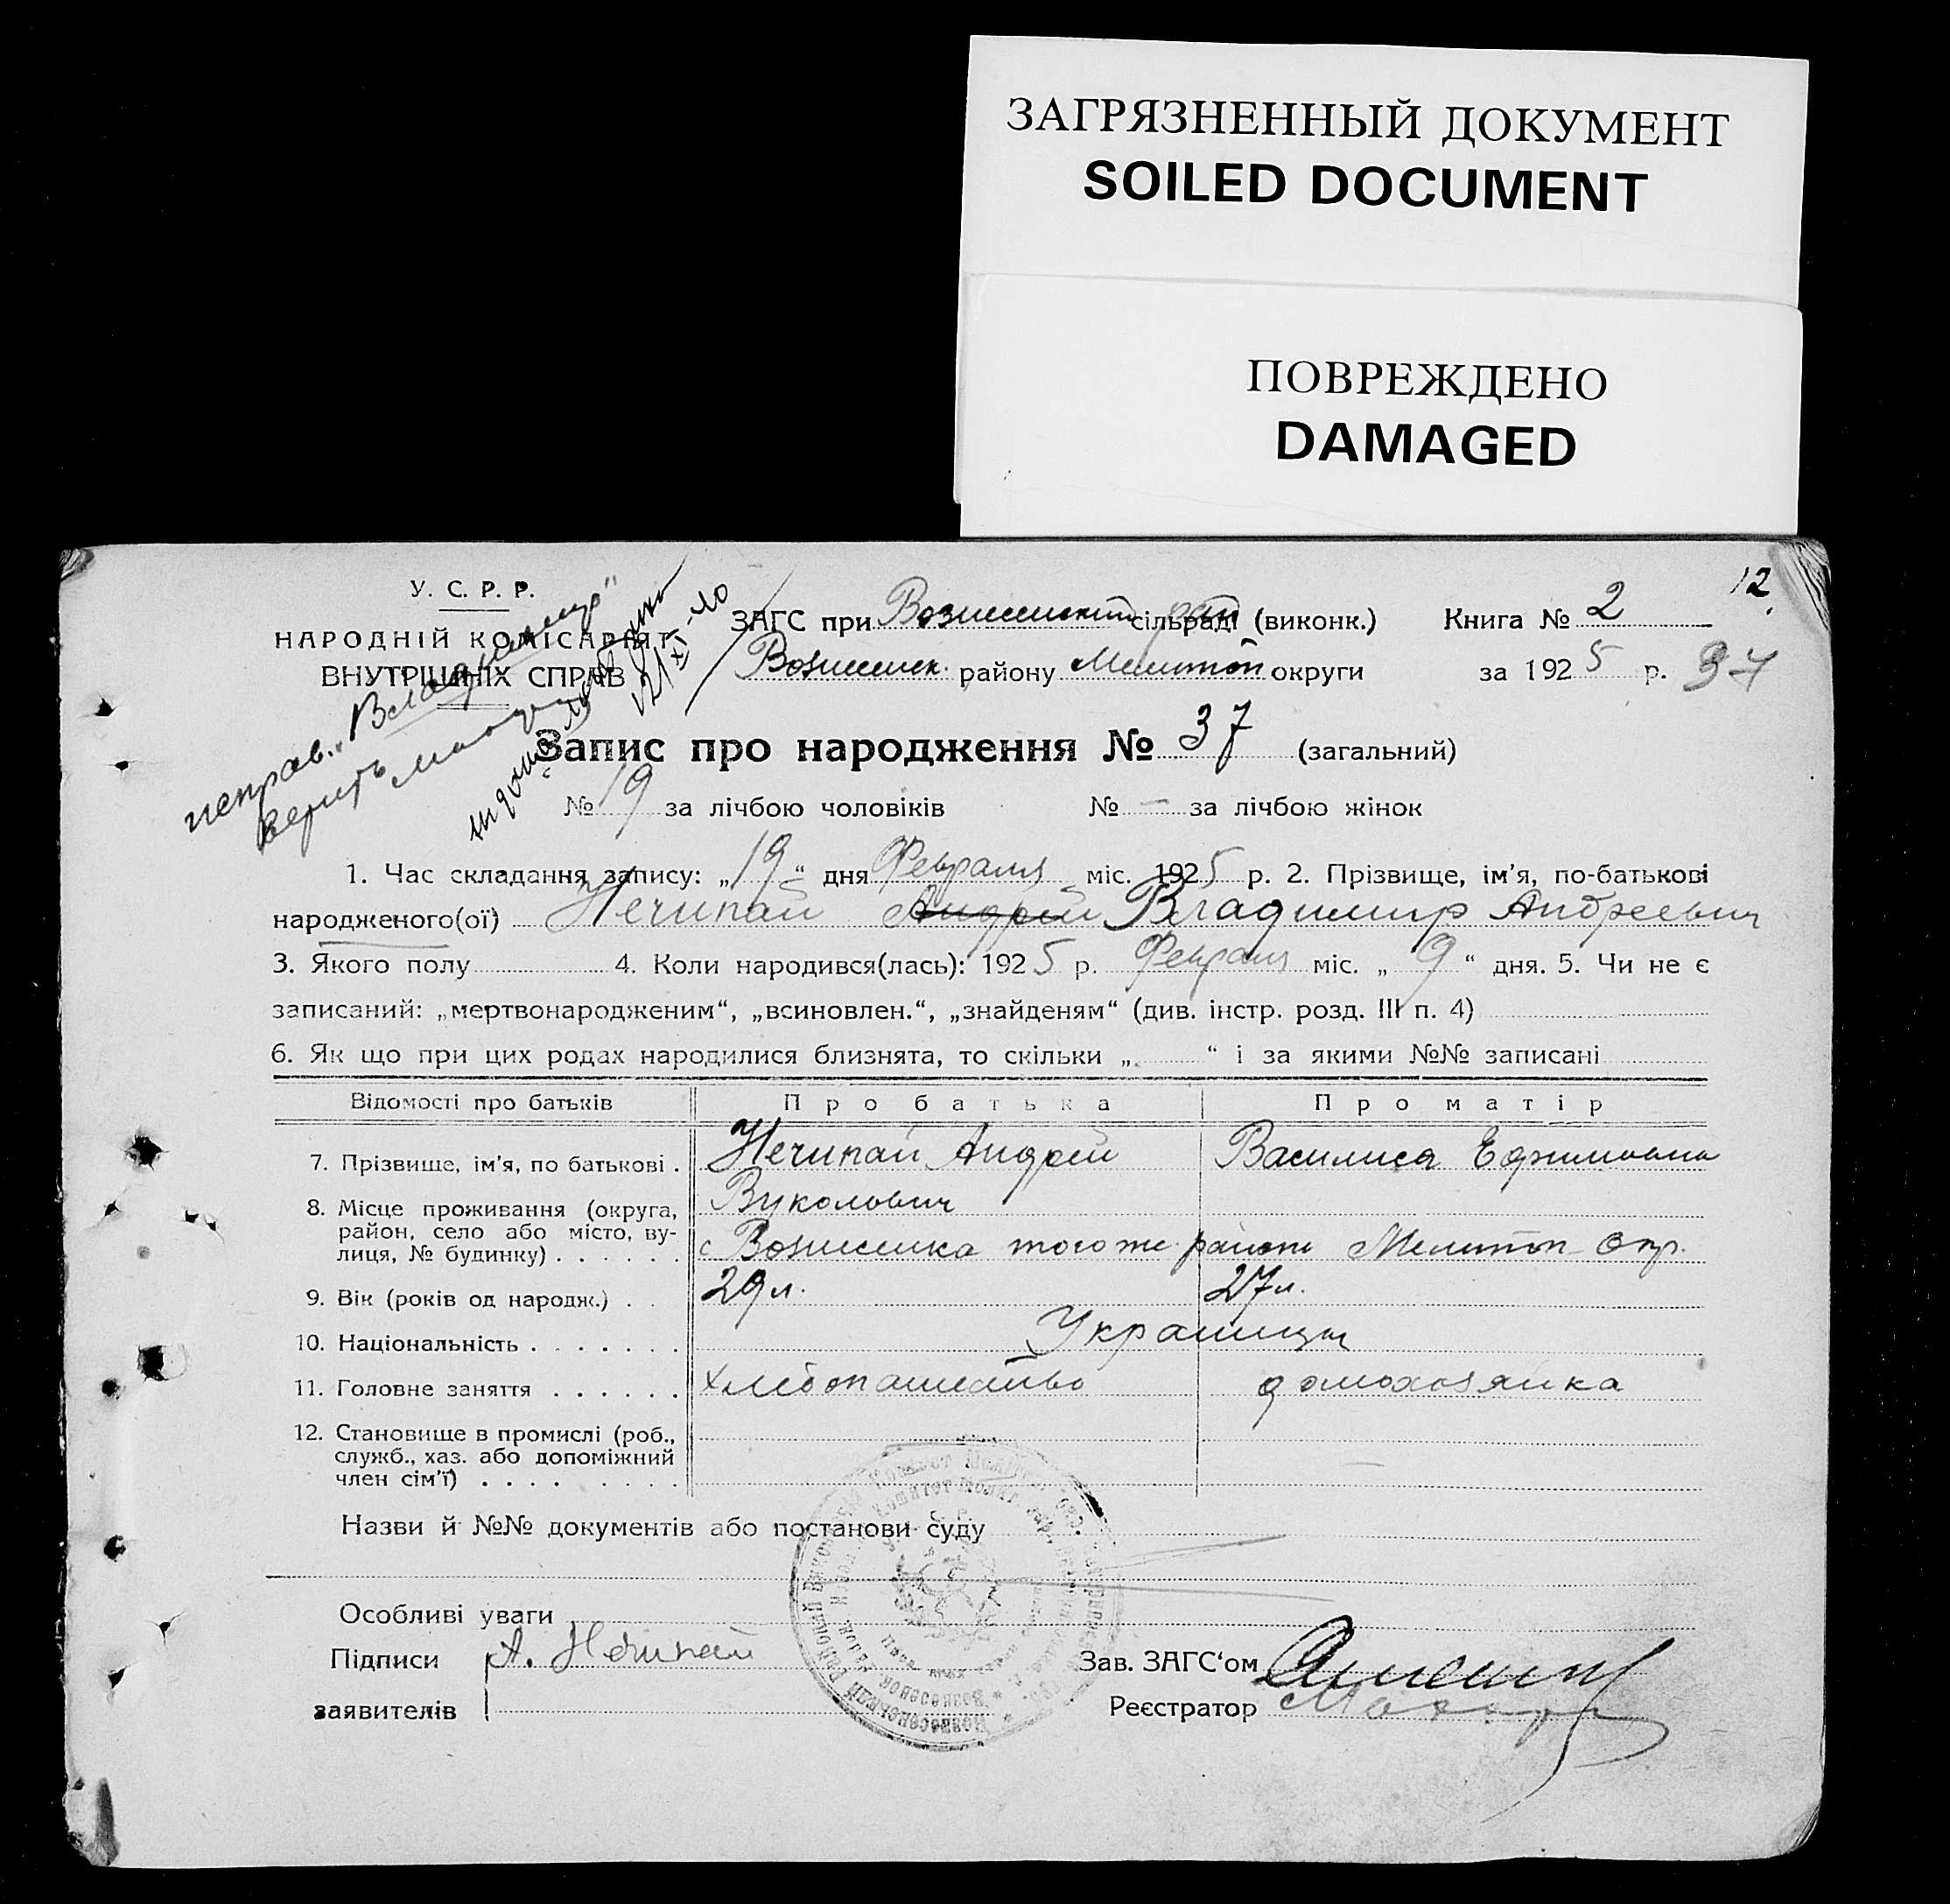 ЗАГРЯЗНЕННЫЙ ДОКУМЕНТ
SOILED DOCUMENT
ПОВРЕЖДЕНО
DAMAGED
12
У. С. Р. Р.
НАРОДНІЙ КОМІСАРІЯТ
ВНУТРІШНІХ СПРАВ
исправ. „Владимир“
верить
ЗАГС при сільраді (виконк.) Книга № 2
району округи за 1925 р. 37
Запис про народження № 37 (загальний)
№ 19 за лічбою чоловіків № — за лічбою жінок
1. Час складання запису: „19“ дня Февраля міс. 1925 р. 2. Прізвище, ім'я, по-батькові
народженого(ої) Нечипай Андрей Владимир Андреевич
3. Якого полу 4. Коли народився(лась): 1925 р. Февраля міс. „9“ дня. 5. Чи не є
записаний: „мертвонародженим“, „всиновлен.“, „знайденям“ (див. інстр. розд. III п. 4)
6. Як що при цих родах народилися близнята, то скільки „ “ і за якими №№ записані
Відомості про батьків Про батька Про матір
7. Прізвище, ім'я, по батькові . Нечипай Андрей Василиса Ефимовна
Вуколович
8. Місце проживання (округа,
район, село або місто, ву-
лиця, № будинку) . . . . . . с Вознесенка того же района Мелитоп. окр.
9. Вік (років од народж.) . . 29 л. 27 л.
10. Національність . . . . . . . Украинцы
11. Головне заняття . . . . . . Хлебопашество домохозяйка
12. Становище в промислі (роб.,
служб., хаз. або допоміжний
член сім'ї) . . . . . . . . .
Назви й №№ документів або постанови суду
Особливі уваги
Підписи А. Нечипай Зав. ЗАГС'ом
заявителів Реєстратор